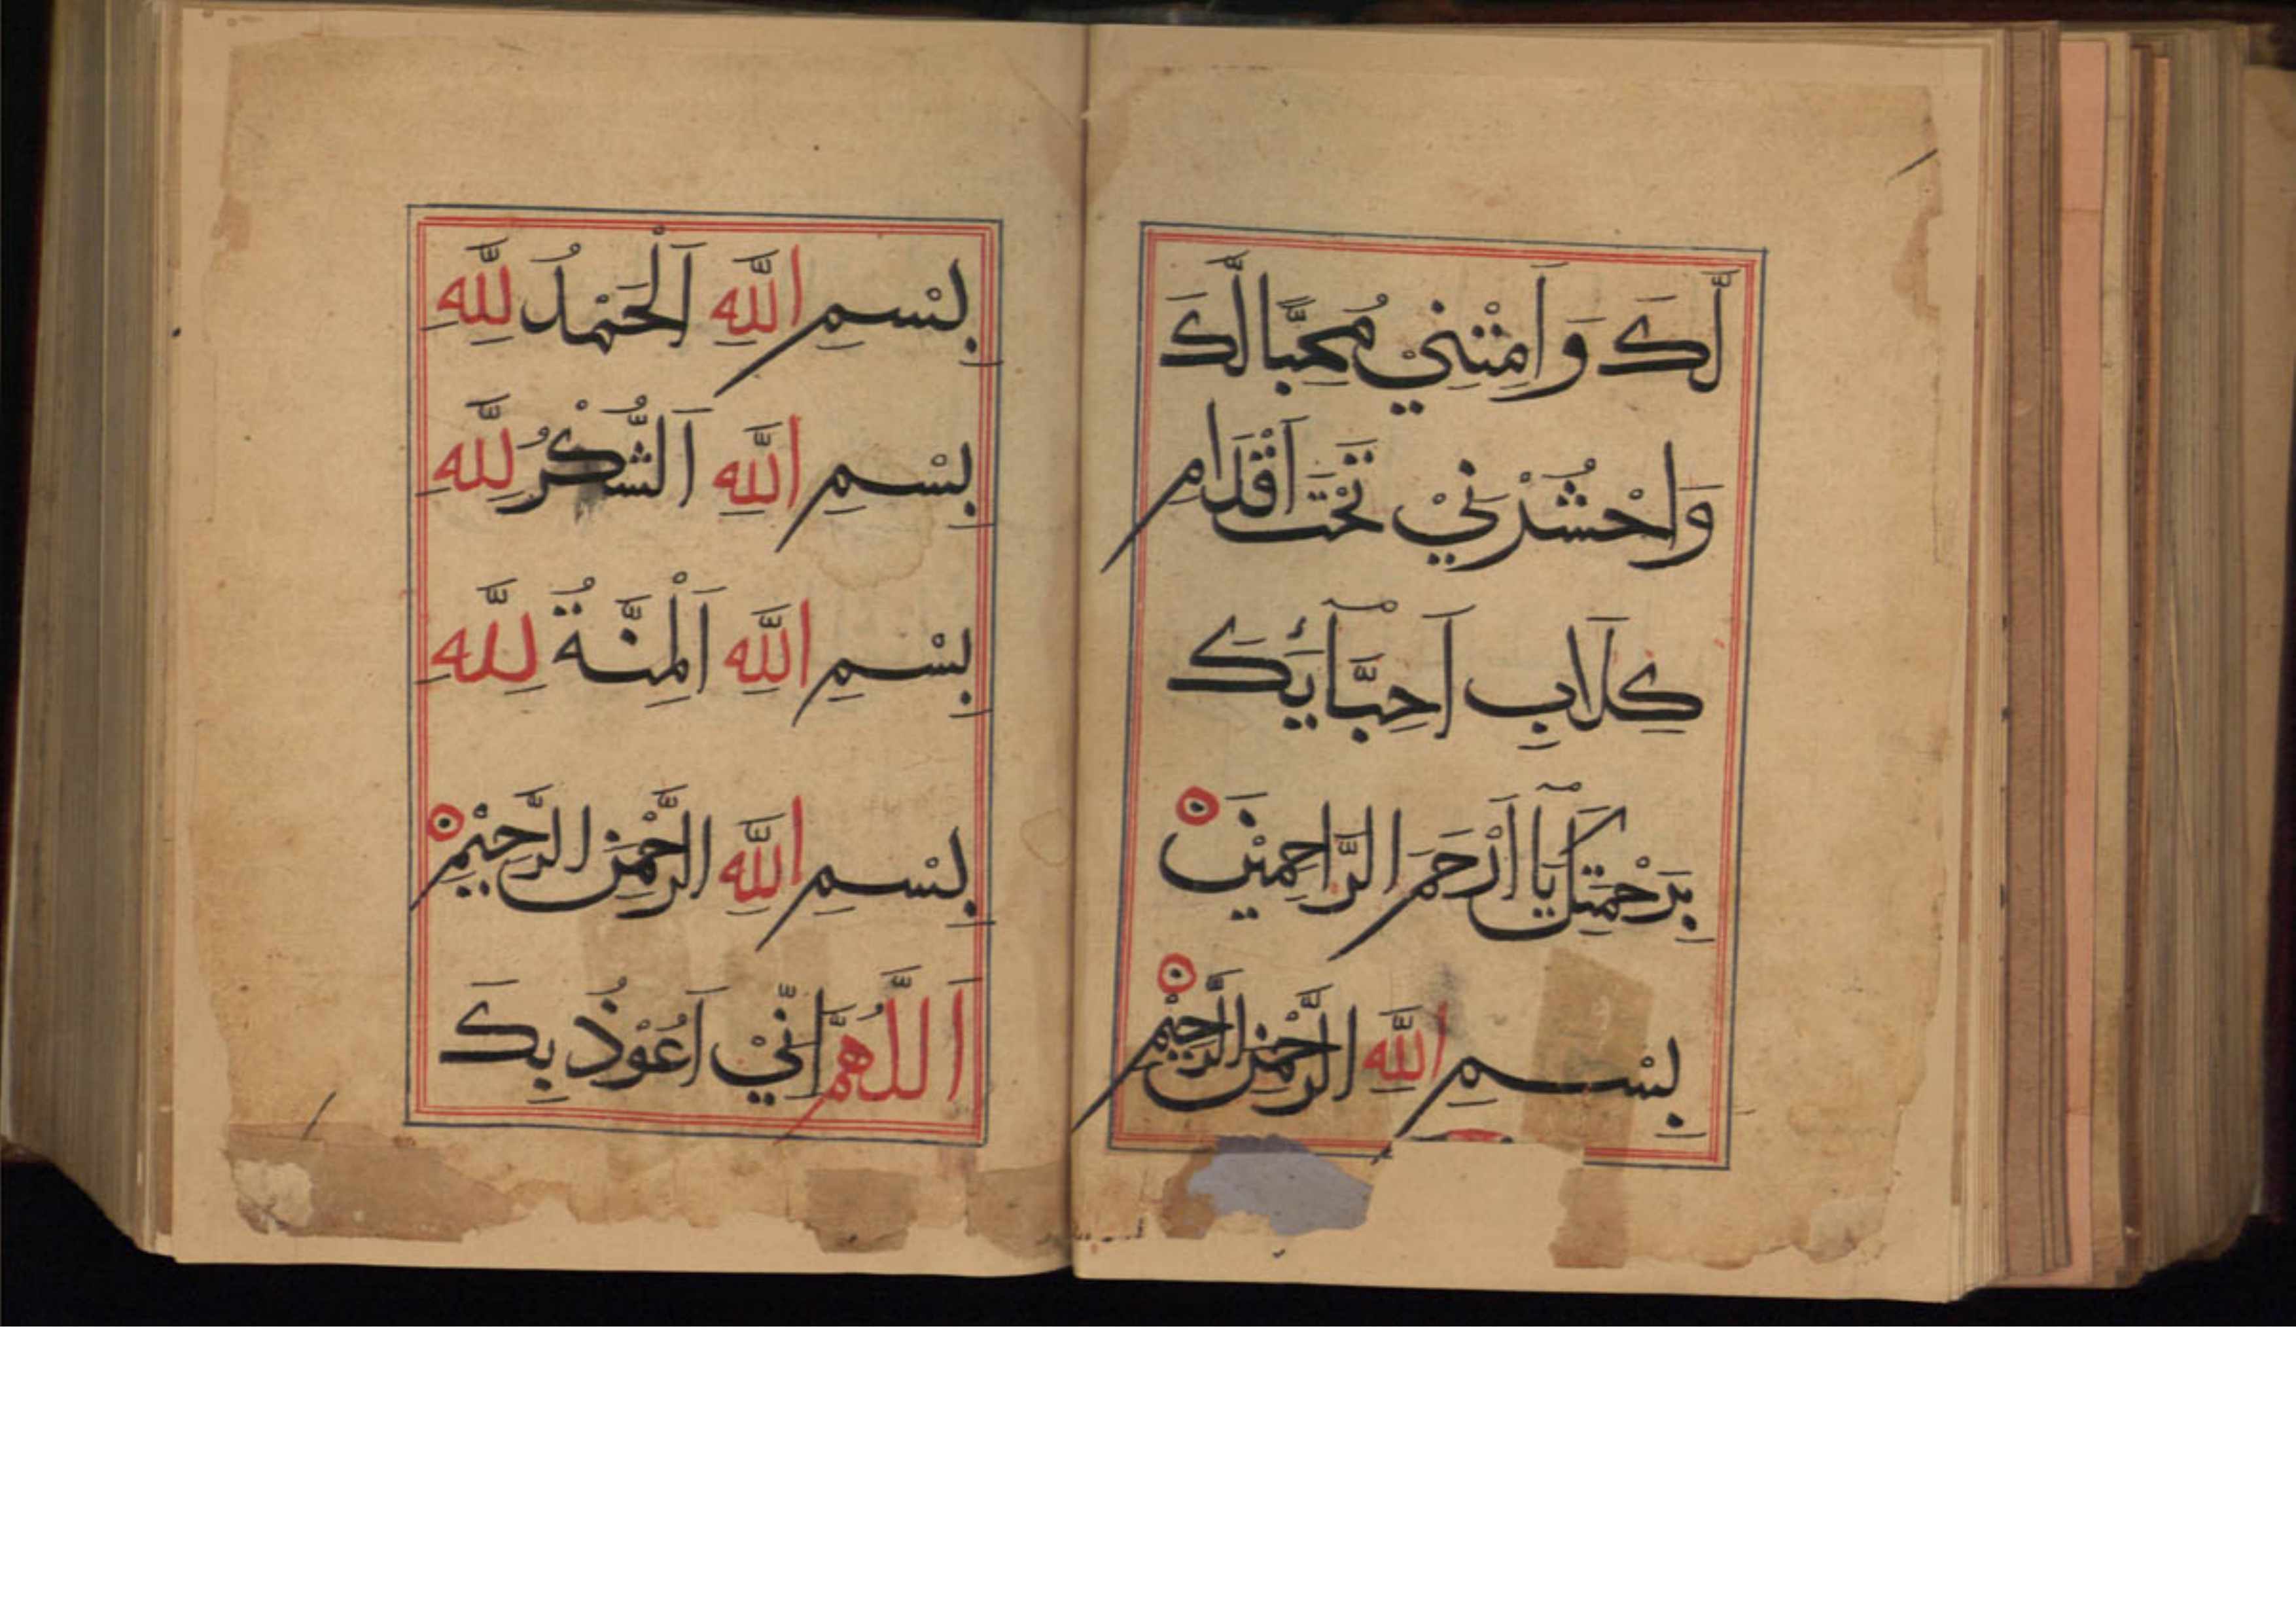 لَّكَ وَاَمِتْنِيْ مُحِبًّا لَّكَ
وَاحْشُرْنِيْ تَحْتَ اَقْدَامِ
كِلَابِ اَحِبَّآئِكَ
بِرَحْمَتِكَ يَآ اَرْحَمَ الرَّاحِمِيْنَ
بِسْمِ اللّٰهِ الرَّحْمٰنِ الرَّحِيْمِ
بِسْمِ اللّٰهِ اَلْحَمْدُ لِلّٰهِ
بِسْمِ اللّٰهِ اَلشُّكْرُ لِلّٰهِ
بِسْمِ اللّٰهِ اَلْمِنَّةُ لِلّٰهِ
بِسْمِ اللّٰهِ الرَّحْمٰنِ الرَّحِيْمِ
اَللّٰهُمَّ اِنِّيْ اَعُوْذُ بِكَ